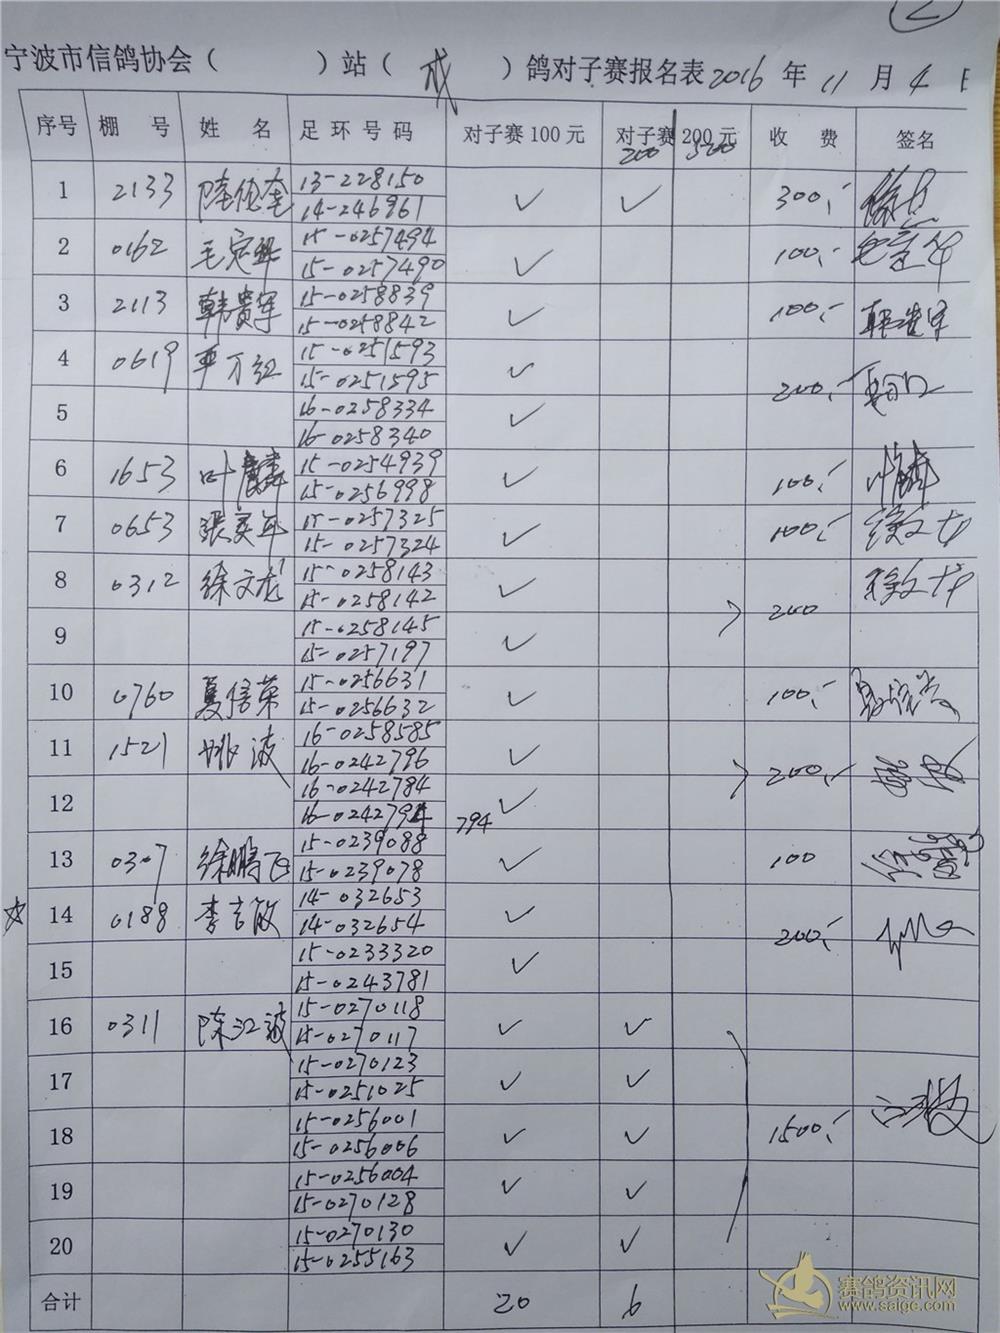 2
宁波市信鸽协会（ ）站（ 成 ）鸽对子赛报名表 2016 年 11 月 4 日
序号 棚 号 姓 名 足 环 号 码 对子赛 100 元 对子赛 200 元 收 费 签名
200 500
1 2133 陆伦奎 13-228150 ✓ ✓ 300,-
14-246961
2 0162 毛定华 15-0257494 ✓ 100,- 毛定华
15-0257490
3 2113 韩贵军 15-0258839 ✓ 100,- 韩贵军
15-0258842
4 0619 15-0251593 ✓ 200,-
15-0251595
5 16-0258334 ✓
16-0258340
6 1653 叶麟 15-0254939 ✓ 100,- 叶麟
15-0256998
7 0653 張英年 15-0257325 ✓ 100,- 徐文龙
15-0257324
8 0312 徐文龙 15-0258143 ✓ 200 徐文龙
15-0258142
9 15-0258145 ✓
15-0257197
10 0760 夏信荣 15-0256631 ✓ 100,-
15-0256632
11 1521 姚波 16-0258585 ✓ 200,- 姚波
16-0242796
12 16-0242784 ✓
16-0242794 794
13 0307 徐鹏飞 15-0239088 ✓ 100
15-0239078
☆ 14 0188 李吉敏 14-032653 ✓ 200,-
14-032654
15 15-0233320 ✓
15-0243781
16 0311 陈江波 15-0270118 ✓ ✓
15-0270117
17 15-0270123 ✓ ✓
15-0251025
18 15-0256001 ✓ ✓ 1500,-
15-0256006
19 15-0256004 ✓ ✓
15-0270128
20 15-0270130 ✓ ✓
15-0255163
合计 20 6
赛鸽资讯网
www.saige.com